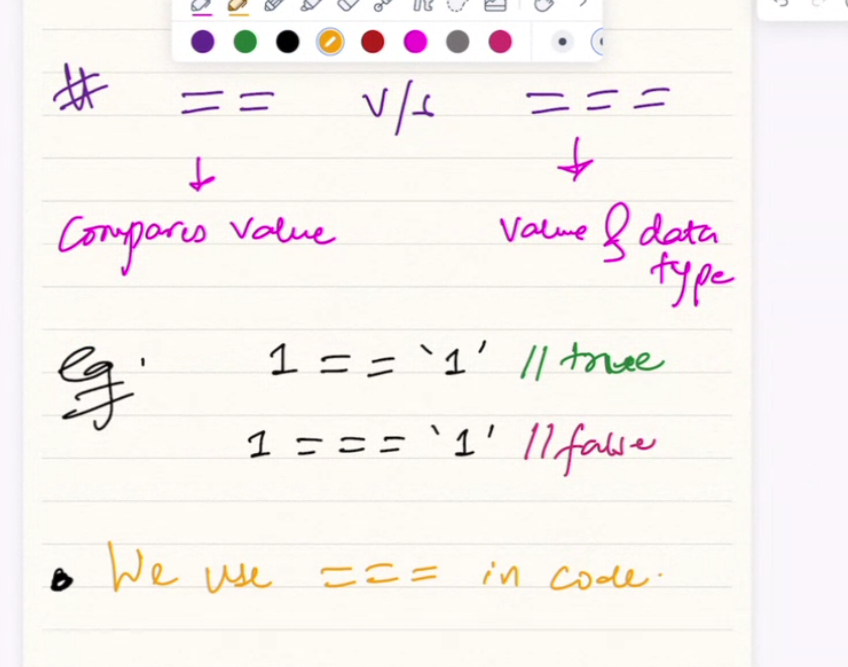 # == v/s ===
↓ ↓
Compares value value & data
type
eg. 1 == `1' // true
1 === `1' // false
• We use === in code.